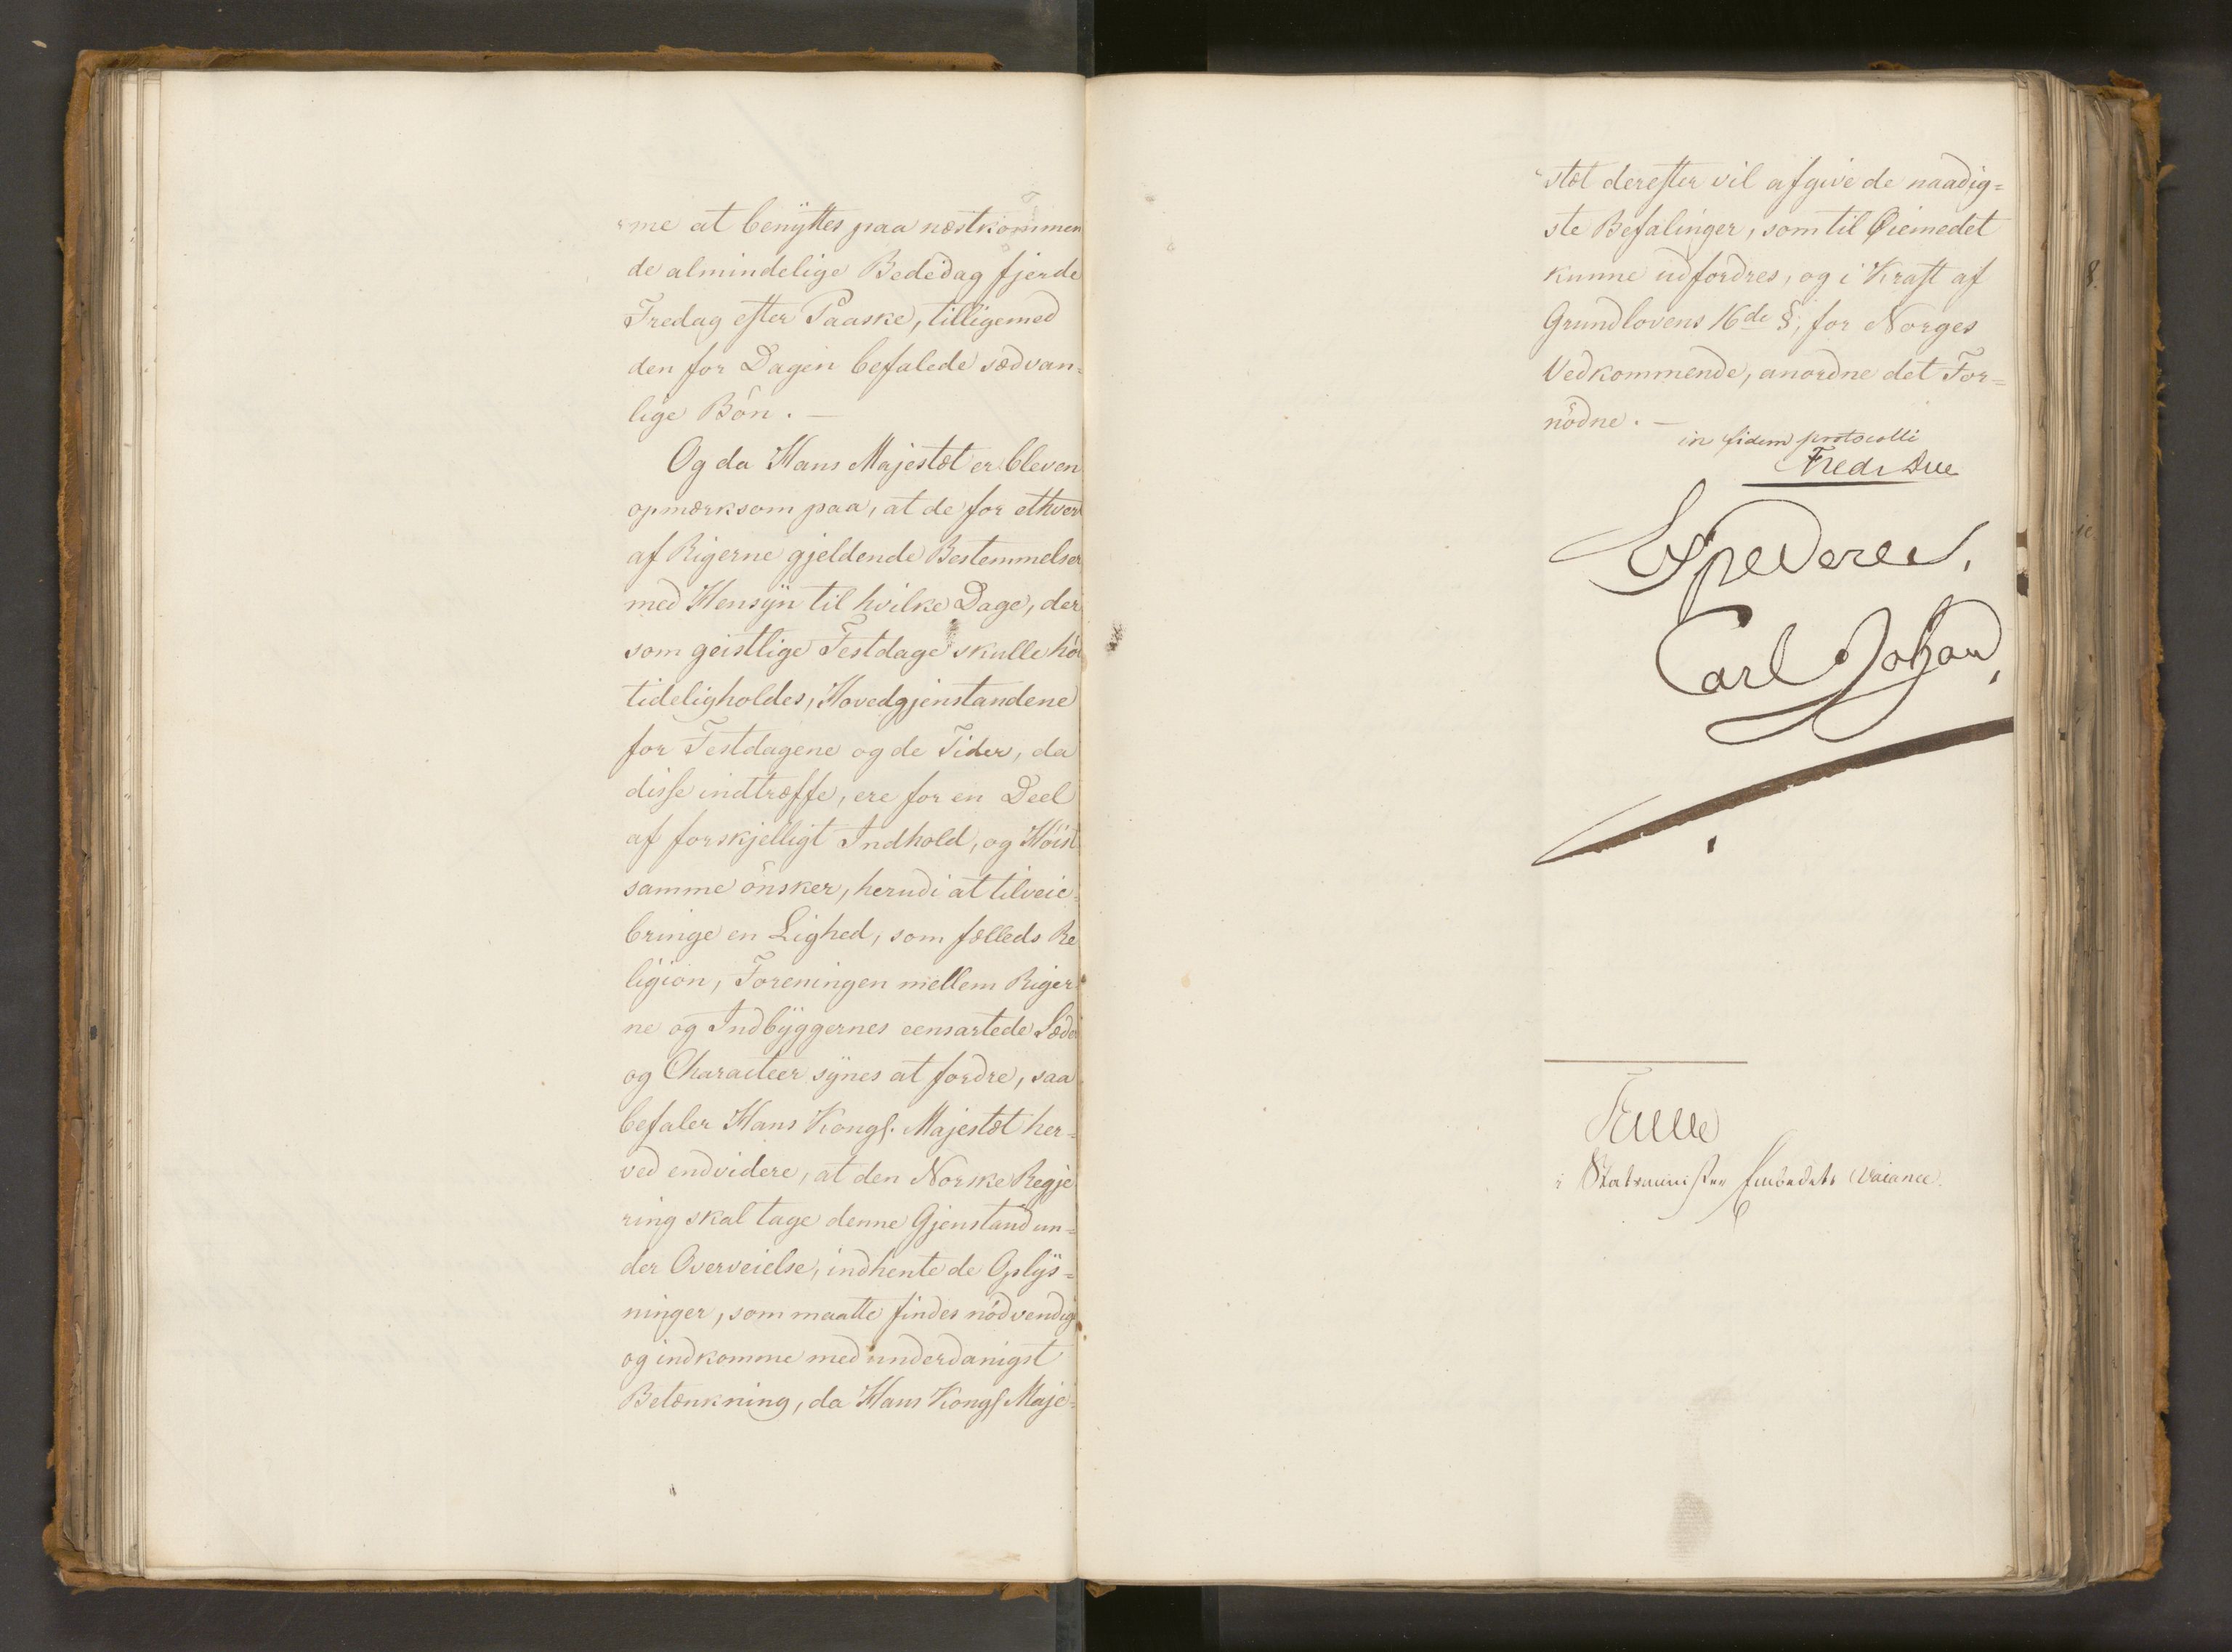 me at benÿttes paa næstkommen
de almindelige Bededag fjerde
Fredag efter Paaske, tilligemed
den for Dagen befalede sædvan-
lige Bön. —
Og da Hans Majestæt er bleven
opmærksom paa, at de for ethvert
af Rigerne gjeldende Bestemmelser
med Hensÿn til hvilke Dage, der
som geistlige Festdage skulle höi
tideligholdes, Hovedgjenstandene
for Festdagene og de Tider, da
disse indtræffe, ere for en Deel
af forskjelligt Indhold, og Höist
samme önsker, herudi at tilveie-
bringe en Lighed, som fælleds Re
ligion, Foreningen mellem Riger
ne og Indbÿggernes eensartede Sæder
og Characteer sÿnes at fordre, saa
befaler Hans Kongl. Majestæt her-
ved endvidere, at den Norske Regje
ring skal tage denne Gjenstand un-
der Overveielse, indhente de Oplÿs-
ninger, som maatte findes nödvendige
og indkomme med underdanigst
Betænkning, da Hans Kongl Maje-
stæt derefter vil afgive de naadig=
ste Befalinger, som til Øiemedet
kunne udfordres, og i Kraft af
Grundlovens 16de §, for Norges
Vedkommende, anordne det For=
nödne. —
in fidem protocolli
Fredr Due
Expederes.
Carl Johan
i Statsminister Embedets Vacance.